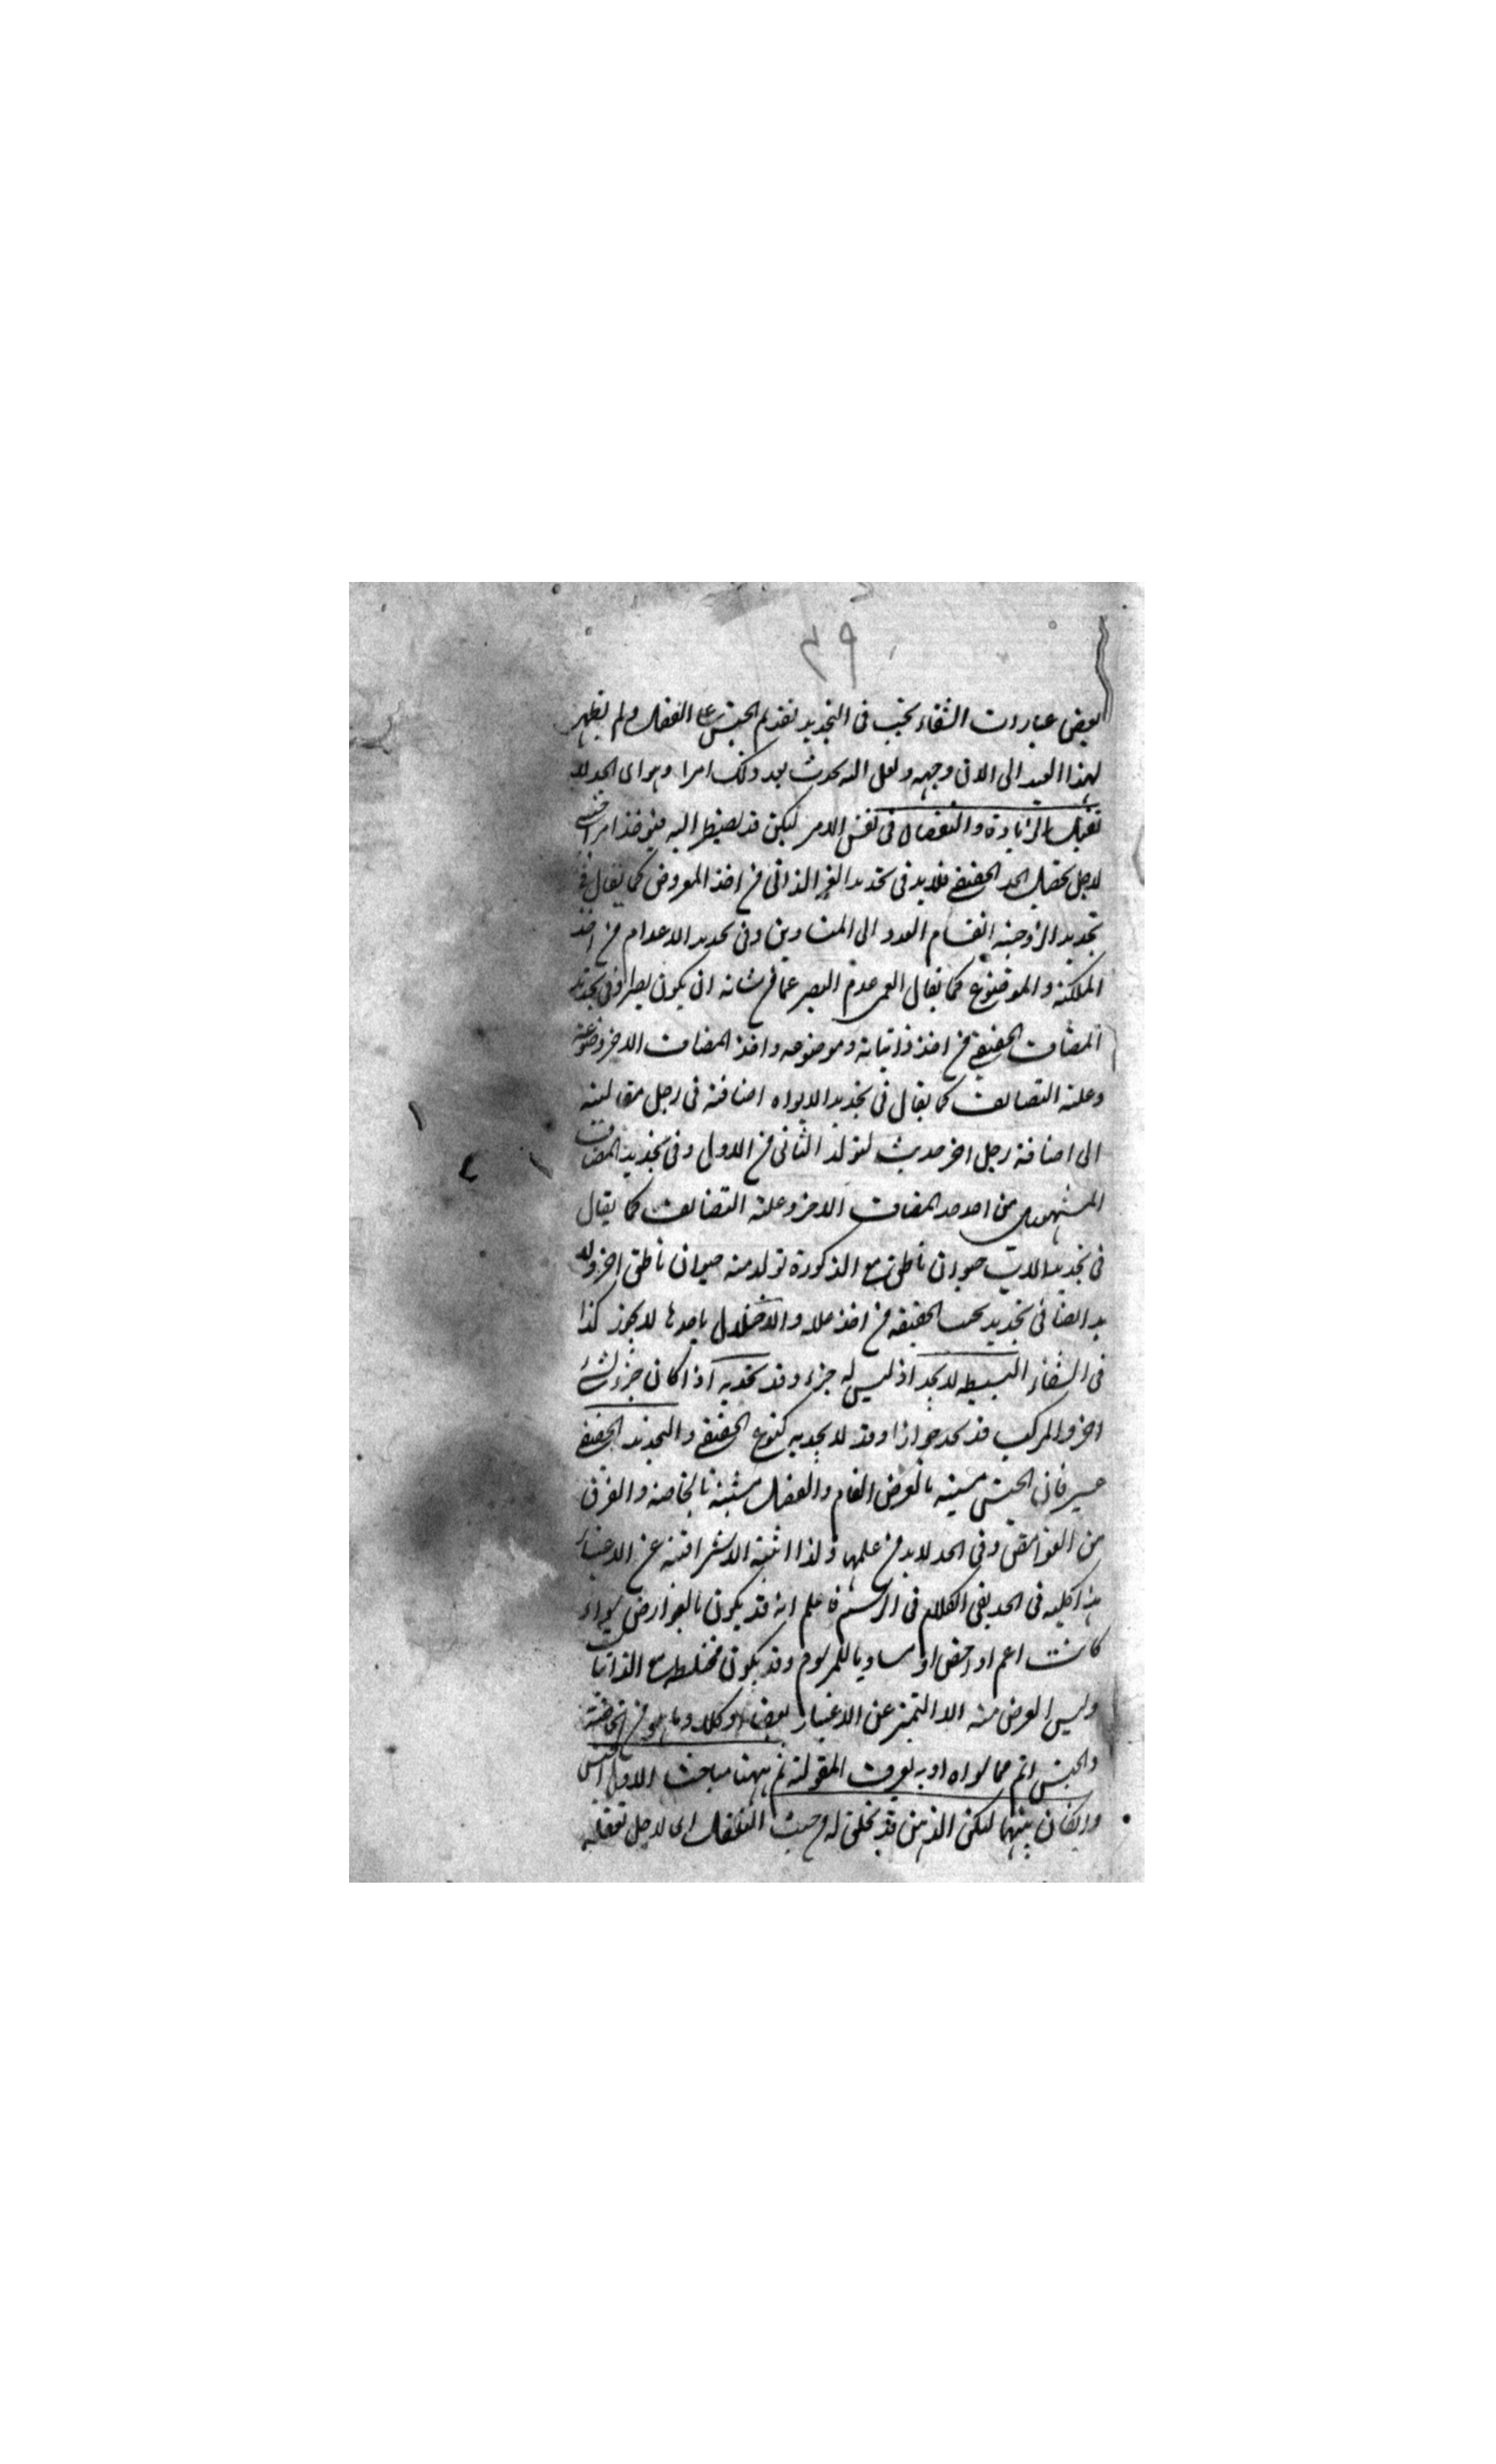 ٢٩
بعض عبارات الشفاء يجب في التحديد تقديم الجنس على الفصل ولم يظهر
لهذا العبد الى الان وجهه ولعل الله يحدث بعد ذلك امرا وهو اى الحد لا
يقبل الزيادة والنقصان في نفس الامر لكن قد يضطر اليه فيؤخذ امر اجنبي
لاجل تحصيل الحد الحقيقي فلا بد في تحديد الغير الذاتي من اخذ المعروض كما يقال في
تحديد الزوجية انقسام العدد الى المتساويين وفي تحديد الاعدام من اخذ
الملكة والموضوع كما يقال العمى عدم البصر عما من شانه ان يكون بصيرا وفي تحديد
المضاف الحقيقي من اخذ ذاتياته وموضوعه واخذ المضاف الاخر وموضوعه
وعلة التضايف كما يقال في تحديد الابوة اضافة في رجل مقابلة
الى اضافة رجل اخر حديث لتولد الثاني من الاول وفي تحديد المضاف
المشهوري من اخذ المضاف الاخر وعلة التضايف كما يقال
في تحديد الاب حيوان ناطق مع الذكورة تولد منه حيوان ناطق اخر ولا
بد ايضا في تحديد بحسب الحقيقة من اخذ علله والاخلال باحدها لا يجوز كذا
في الشفاء البسيط لا يحد اذ ليس له جزء وقد يحد به اذا كان جزء لشئ
اخر والمركب قد يحد جوازا وقد لا يحد به كنوع الحقيقي والتحديد الحقيقي
عسير فان الجنس مشتبه بالعرض العام والفصل مشتبه بالخاصة والفرق
من الغوامض وفي الحد لا بد من علمها ولذا اثبته الاشراقية عن الاعتبار
هذا كليه في الحد بقي الكلام في الرسم فاعلم انه قد يكون بالعوارض سواء
كانت اعم او اخص او مساويا للمرسوم وقد يكون مختلطة مع الذاتيات
وليس الغرض منه الا التميز عن الاغيار بعضا او كلا وما هو من الخاصة
والجنس اتم مما سواه او به يعرف المقولة ثم ههنا مباحث الاول الجنس
وان كان مبهما لكن الذهن قد يخلق له من حيث التعقل اى لاجل تعقله